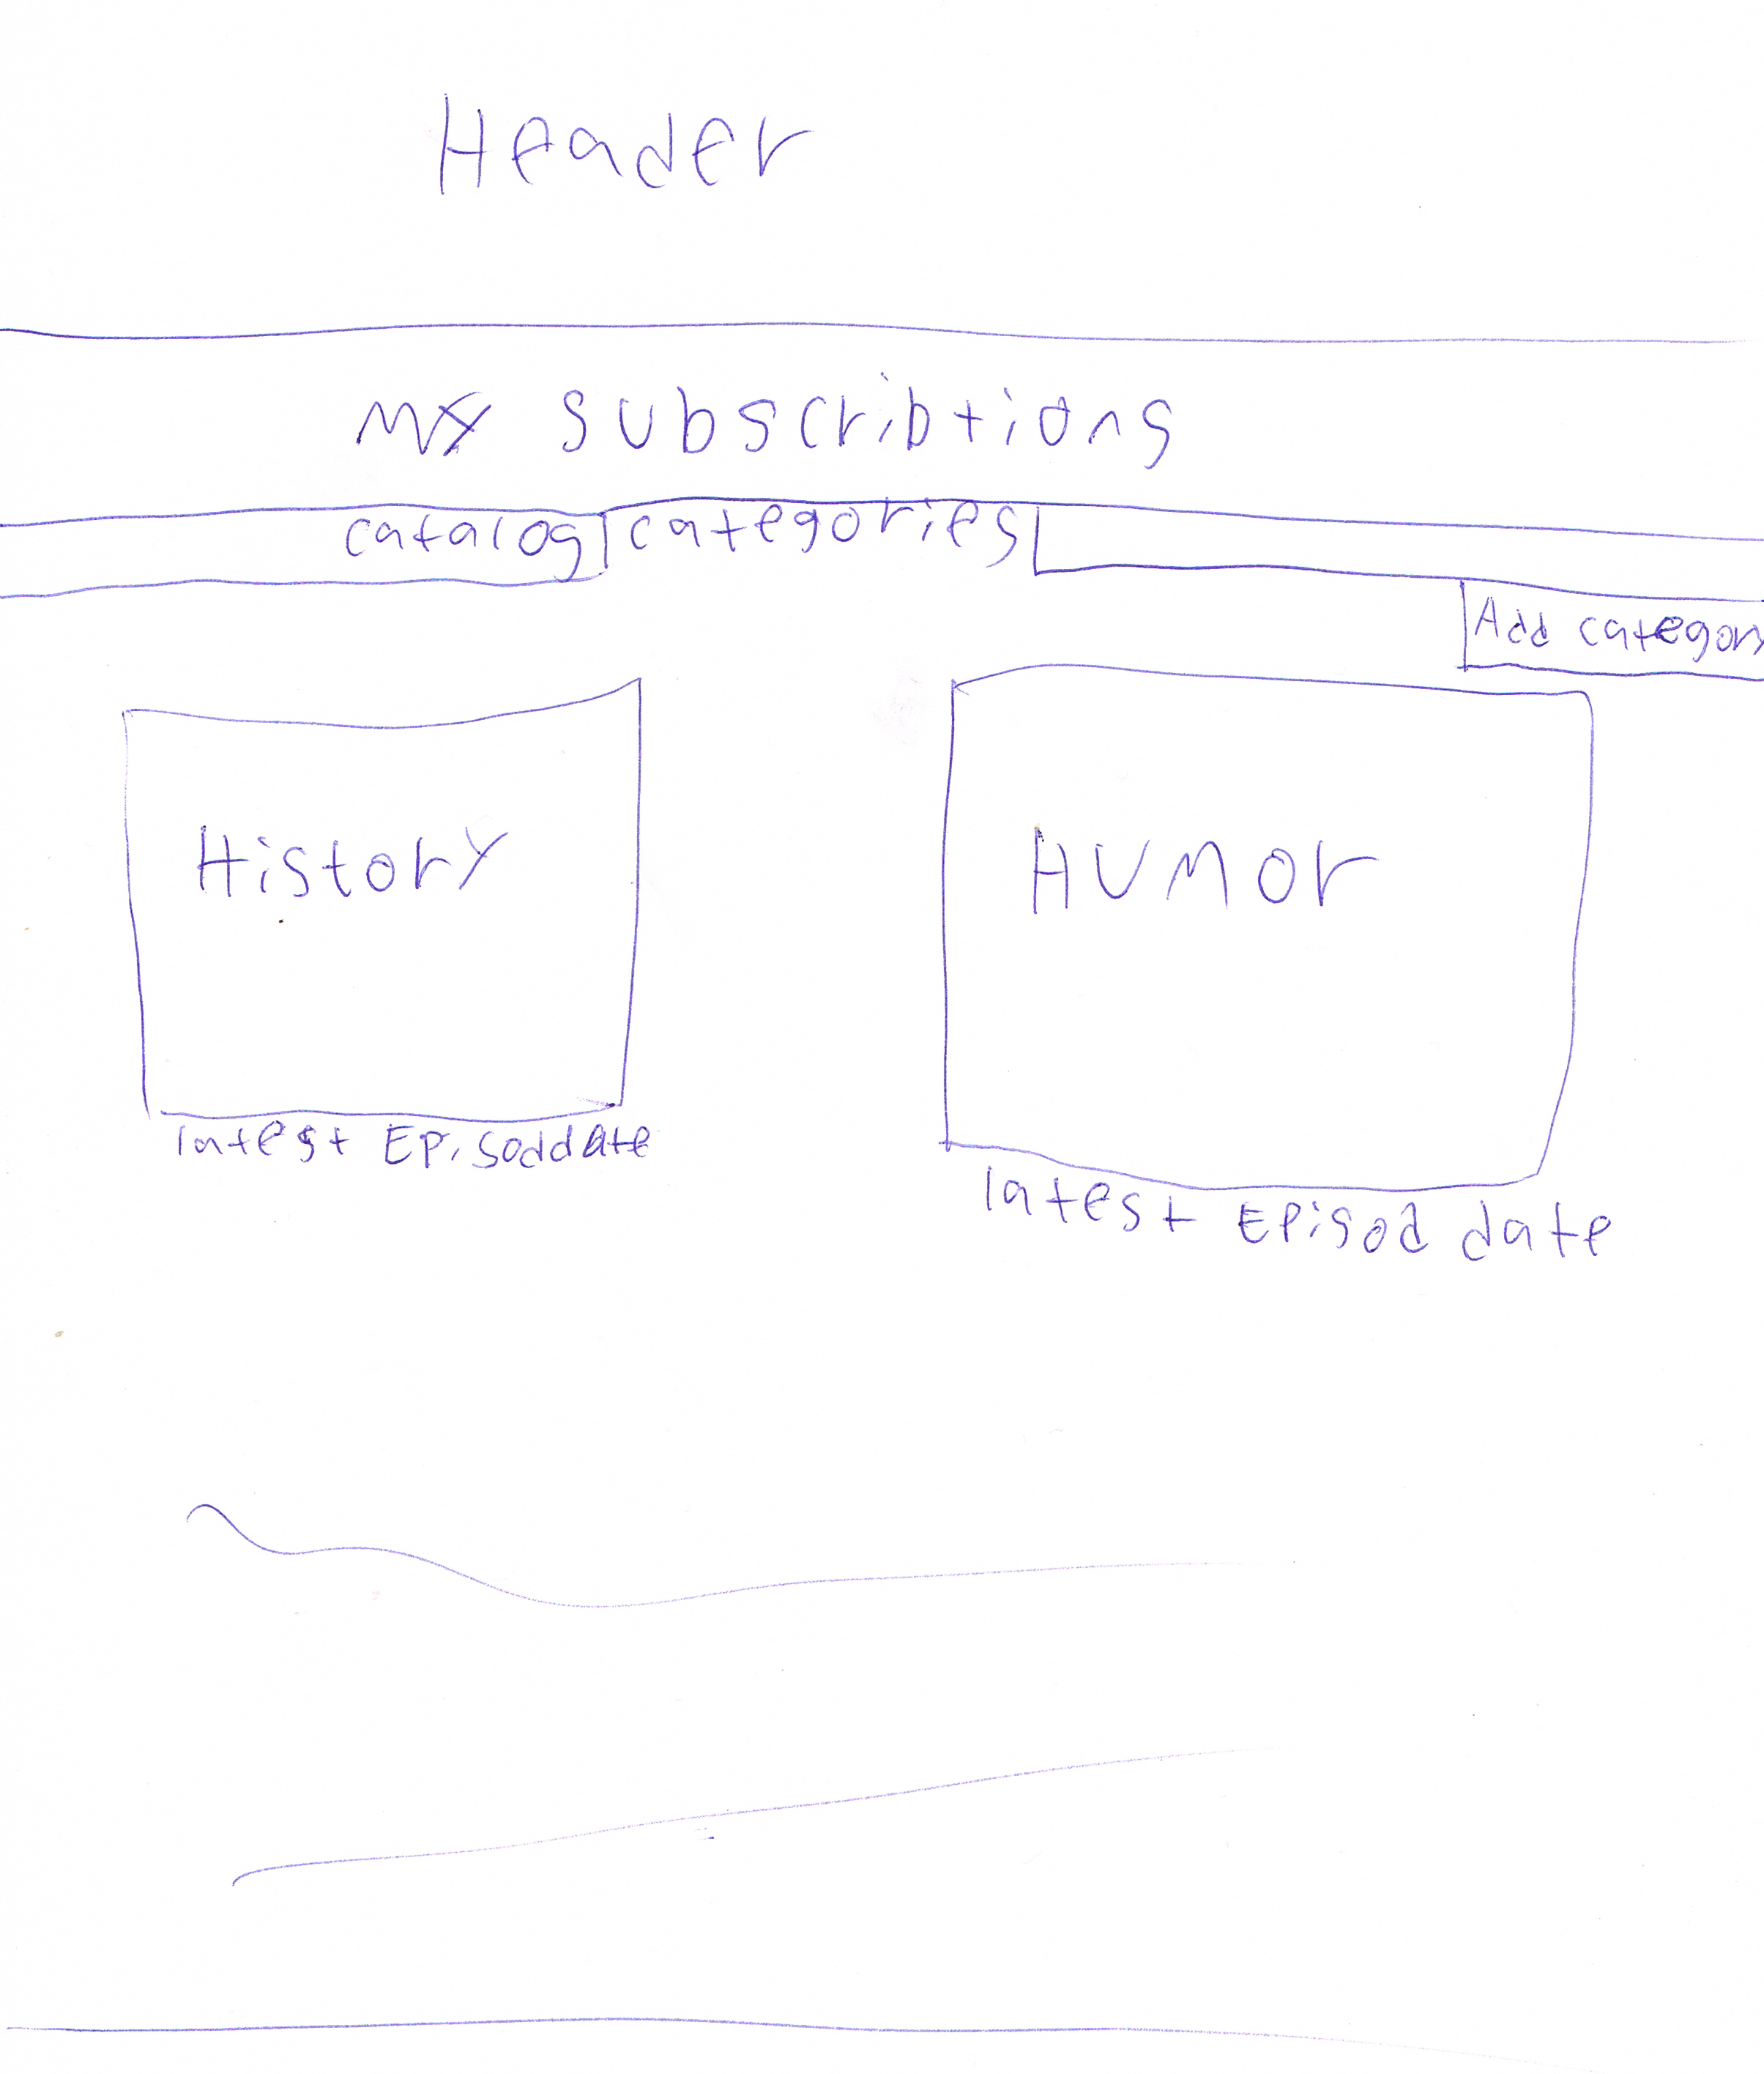 Header
My subscribtions
catalog categories
Add categor
History
Humor
latest Episoddate
latest Episod date